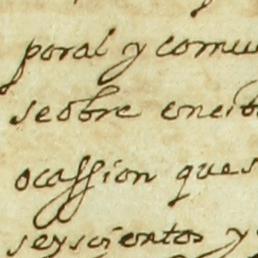 poral y comu
se obre en cib
ocassion ques
seyscientos y